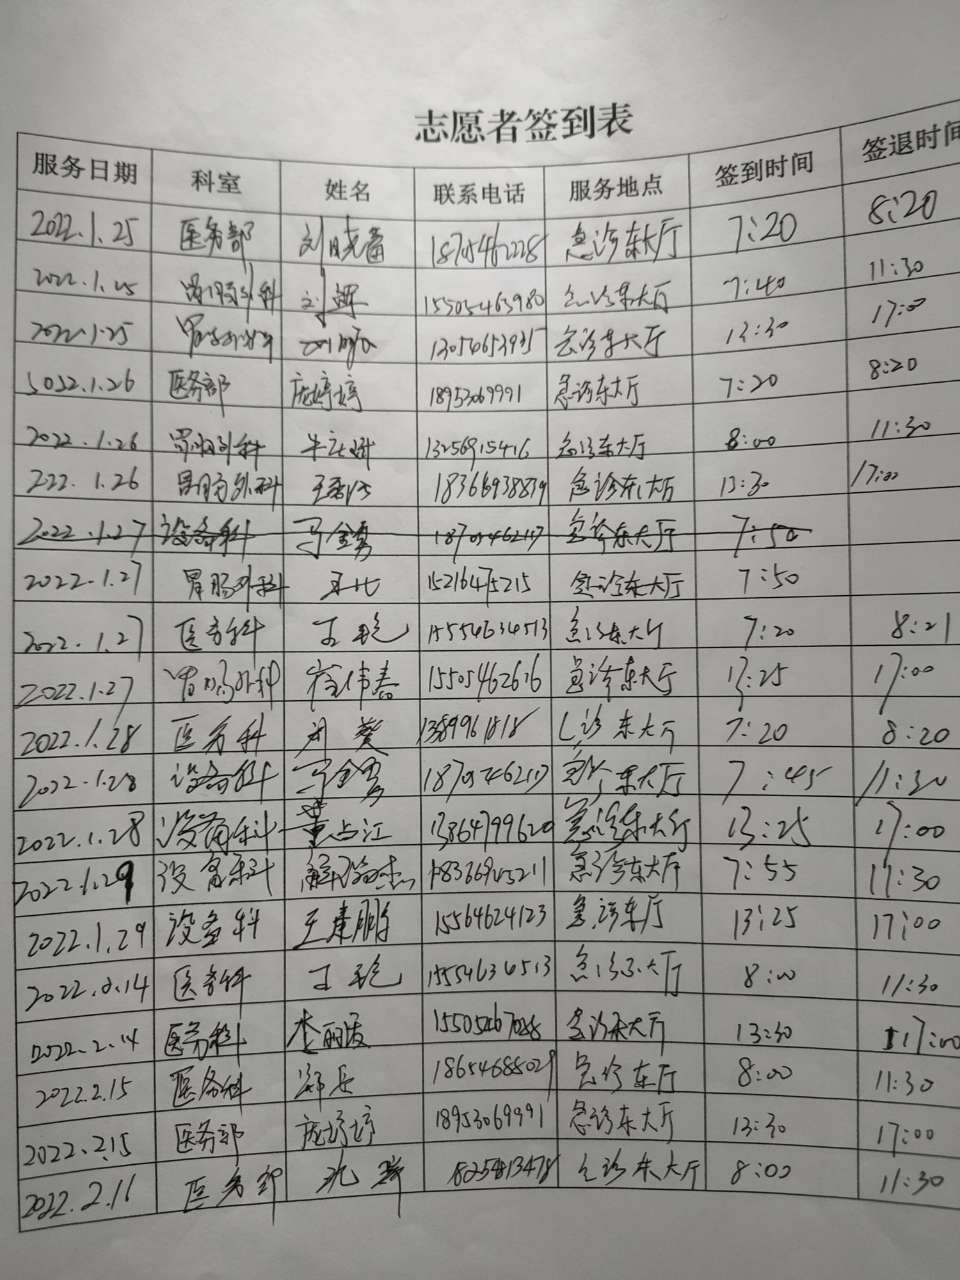 志愿者签到表
服务日期 科室 姓名 联系电话 服务地点 签到时间 签退时间
2022.1.25 医务部 急诊东大厅 7:20 8:20
2022.1.25 胃肠外科 15505463980 急诊东大厅 7:40 11:30
2022.1.25 13054653935 急诊东大厅 13:30 17:00
2022.1.26 医务部 庞婷婷 18953069991 急诊东大厅 7:20 8:20
2022.1.26 胃肠外科 13256915416 急诊东大厅 8:00 11:30
222.1.26 胃肠外科 18366938839 急诊东大厅 13:30 17:00
2022.1.27 设备科 马金勇 急诊东大厅 7:50
2022.1.27 胃肠外科 15216475215 急诊东大厅 7:50
2022.1.27 医务科 王艳 15554634513 急诊东大厅 7:20 8:21
2022.1.27 胃肠外科 15505462616 急诊东大厅 13:25 17:00
2022.1.28 医务科 急诊东大厅 7:20 8:20
2022.1.28 设备科 马金勇 急诊东大厅 7:45 11:30
2022.1.28 设备科 董占江 13864799620 急诊东大厅 13:25 17:00
2022.1.29 设备科 急诊东大厅 7:55 11:30
2022.1.29 设备科 王建鹏 15564624123 急诊东厅 13:25 17:00
2022.2.14 医务科 王艳 15554634513 急诊东大厅 8:00 11:30
2022.2.14 医务科 急诊东大厅 13:30 17:00
2022.2.15 医务科 18654685029 急诊东厅 8:00 11:30
2022.2.15 医务部 庞婷婷 18953069991 急诊东大厅 13:30 17:00
2022.2.16 医务部 18254813478 急诊东大厅 8:00 11:30